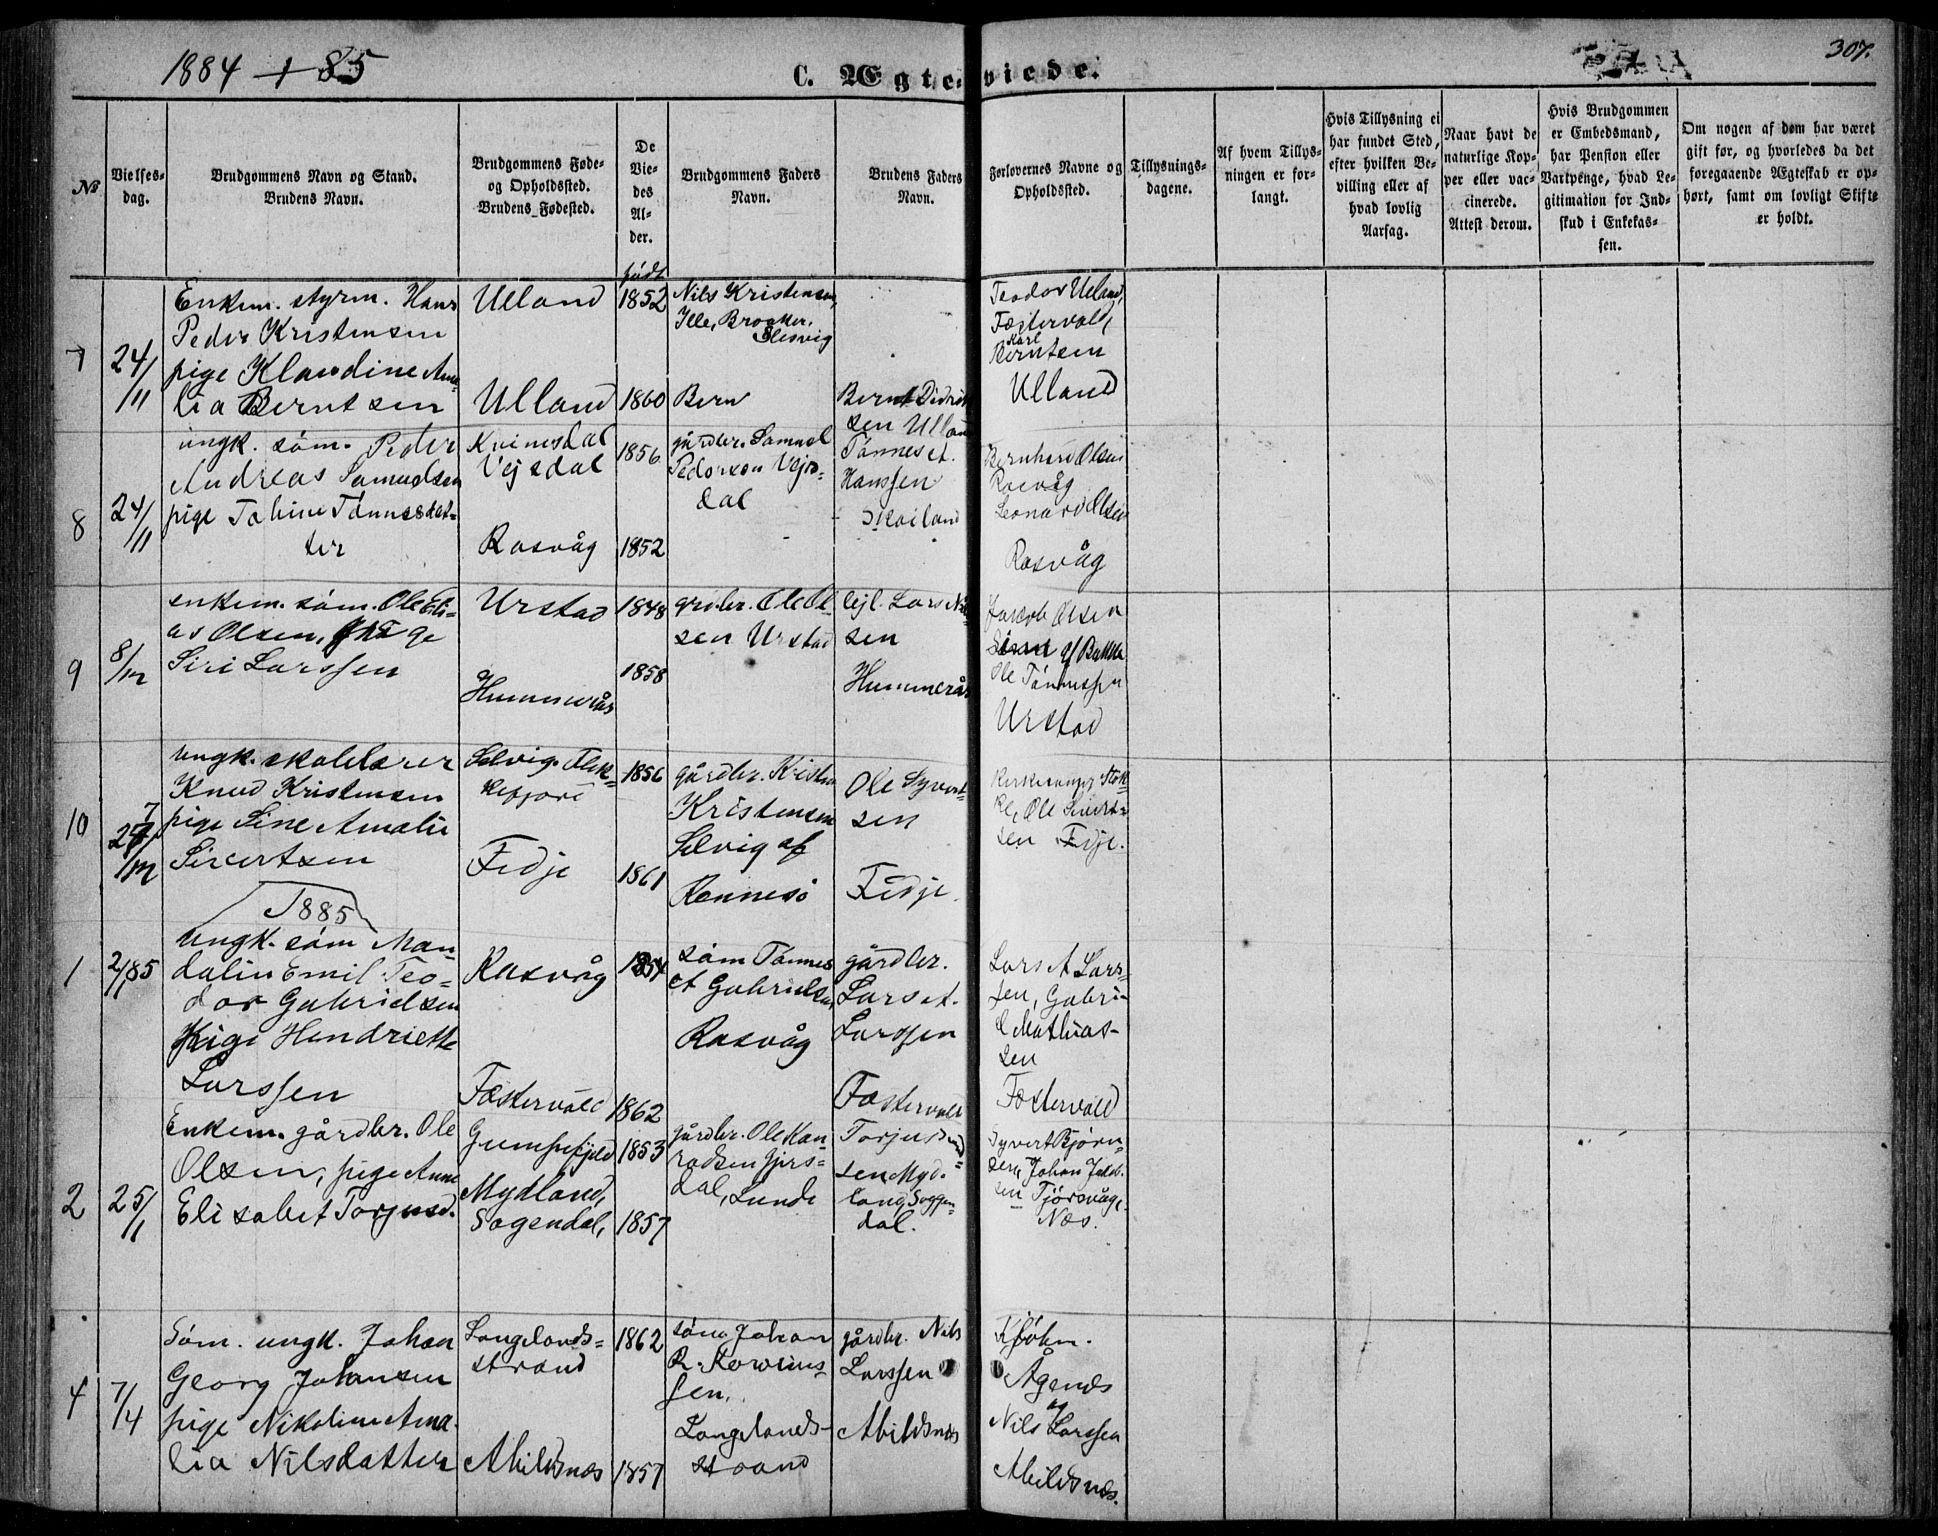 1884 + 85
C. Ægteviede.
307.
No
Vielses-
dag.
Brudgommens Navn og Stand.
Brudens Navn.
Brudgommens Føde-
og Opholdssted.
Brudens Fødested.
De
Vie-
des
Al-
der.
født
Brudgommens Faders
Navn.
Brudens Faders
Navn.
Forlovernes Navne og
Opholdssted.
Tillysnings-
dagene.
Af hvem Tillys-
ningen er for-
langt.
Hvis Tillysning ei
har fundet Sted,
efter hvilken Be-
villing eller af
hvad lovlig
Aarsag.
Naar havt de
naturlige Kop-
per eller vac-
cinerede.
Attest derom.
Hvis Brudgommen
er Embedsmand,
har Pension eller
Vartpenge, hvad Le-
gitimation for Ind-
skud i Enkekas-
sen.
Om nogen af dem har været
gift før, og hvorledes da det
foregaaende Ægteskab er op-
hørt, samt om lovligt Skifte
er holdt.
7
24/11
Enkem. styrm. Hans
Peder Kristensen
pige Klaudine Ama-
lia Berntsen
Ulland
Ulland
1852
1860
Nils Kristensen,
Brooker,
Slesvig
Bern
Bernt Didrik
sen Ulland
Teodor Ulland,
Fæstervold,
Karl
Berntsen
Ulland
8
24/11
ungk. søm. Peder
Andreas Samuelsen
pige Tobine Tønnesdat-
ter
Kvinesdal
Vejsdal
Rasvåg
1856
1852
gårdbr. Samuel
Pedersen Vejs-
dal
Tønnes A.
Hanssen
Bernhard Olsen
Rasvåg
Leonard Olsen
Rasvåg
9
8/12
enkem. søm. Ole Eli-
as Olsen, pige
Siri Larssen
Urstad
Hummerås
1848
1858
grdbr. Ole Ol-
sen Urstad
lejl. Lars Nil
sen
Hummerås
Jakob Olsen
Ole Tønnessen
Urstad
10
27/12
ungk. skolelærer
Knud Kristensen
pige Sine Amalie
Sivertsen
Selvig. Flek-
kefjord
Fedje
1856
1861
gårdbr. Kristen
Kristensen
Selvig af
Rennesø
Ole Syvert-
sen
Fedje.
kirkesanger Stok-
ke, Ole Sivert-
sen Fedje.
1885
1
2/1 85
Ungk. søm Man-
dalin Emil Teo-
dor Gabrielsen
Pige Hendriette
Larssen
Rasvåg
Fæstervold
1854
1862
søm Tønnes
A Gabrielsen,
Rasvåg
gårdbr.
Lars A.
Larssen
Fæstervold
Lars A Lars-
sen, Gabri-
el Mathias-
sen
Fæstervold
2
25/1
Enkem. gårdbr. Ole
Olsen, pige Anne
Elisabet Torjusd.
Gumpefjeld
Mydland,
Sogendal,
1853
1857
gårdbr. Ole Kan-
radsen Gjers-
dal, Lunde
Torjus
sen Myd-
land Soggen-
dal.
Syvert Bjørn-
sen, Johan Jakob-
sen Tjørsvåg,
Næs.
4
7/4
Søm. ungk. Johan
Georg Johansen
pige Nikoline Ama-
lia Nilsdatter
Langelands-
strand
Abildsnæs
1862
1857
søm Johan
R.
sen,
Langelands-
strand
gårdbr. Nils
Larssen
Abildsnæs
Agenæs
og
Nils Larssen
Abildsnæs.